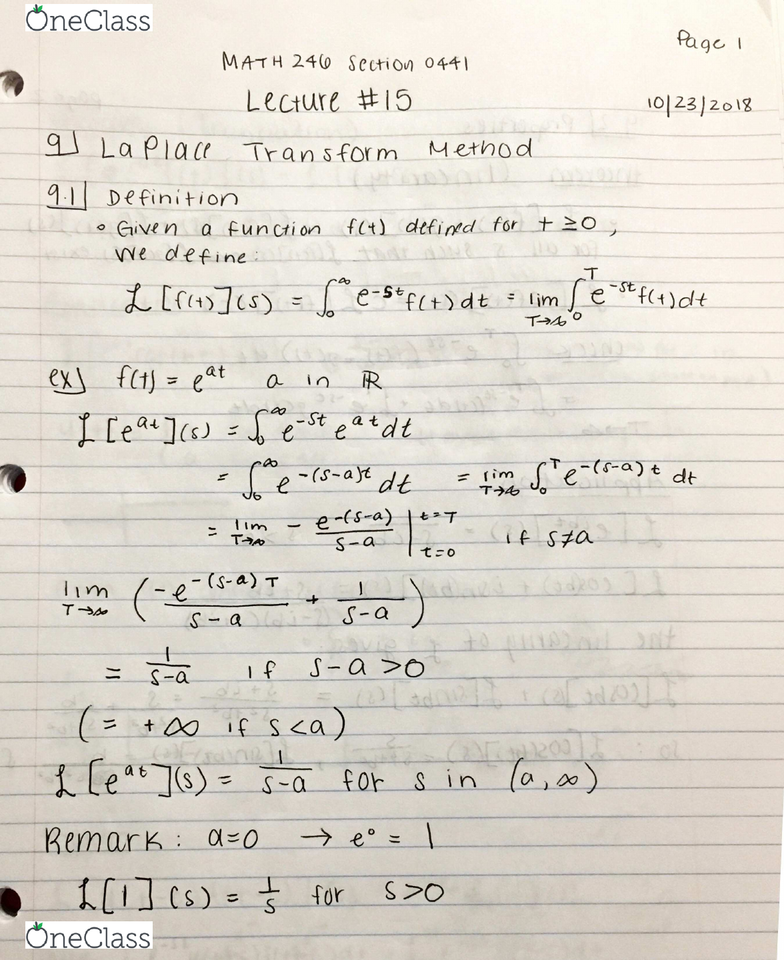 OneClass
Page 1
MATH 246 Section 0441
Lecture #15
10/23/2018
9) LaPlace Transform Method
9.1) Definition
• Given a function f(t) defined for t ≥0,
we define:
ℒ[f(t)](s) = ∫₀^∞ e^-st f(t) dt = lim T→∞ ∫₀^T e^-st f(t) dt
ex) f(t) = e^at a in ℝ
ℒ[e^at](s) = ∫₀^∞ e^-st e^at dt
= ∫₀^∞ e^-(s-a)t dt = lim T→∞ ∫₀^T e^-(s-a)t dt
= lim T→∞ - e^-(s-a) / s-a |t=T t=0 if s≠a
lim T→∞ (-e^-(s-a)T / s-a + 1 / s-a)
= 1 / s-a if s-a >0
(= +∞ if s<a)
ℒ[e^at](s) = 1 / s-a for s in (a,∞)
Remark: a=0 → e^0 = 1
ℒ[1](s) = 1 / s for s>0
OneClass